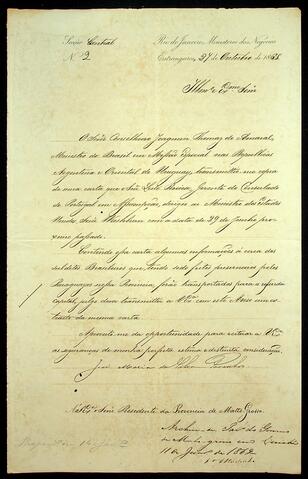 Secção Central
N. 2
Rio de Janeiro, Ministerio dos Negocios
Estrangeiros, 27 de Outubro de 1865
Illmo. e Exmo. Senr.
O Senr. Conselheiro Joaquim Thomaz do Amaral,
Ministro do Brasil em Missão Especial nas Republicas
Argentina e Oriental do Uruguay, transmittio-me copia
de uma carta que o Senr. gerente do Consulado
de Portugal em Assumpção, dirigio ao Ministro dos Estados
Unidos Senr. Washburn com a data de 29 de Junho pro-
ximo passado.
Contendo essa carta algumas informações á cerca dos
subditos Brasileiros que tendo sido feitos prisioneiros pelos
Paraguayos nessa Provincia, forão transportados para a referida
capital, julgo dever transmittir a VEx. com este Aviso um ex-
tracto da mesma carta.
Aproveito-me da opportunidade para reiterar a VEx.
as seguranças de minha perfeita estima e distincta consideração.
José Maria da Silva Paranhos
A S. Exa. o Senr. Presidente da Provincia de Matto Grosso